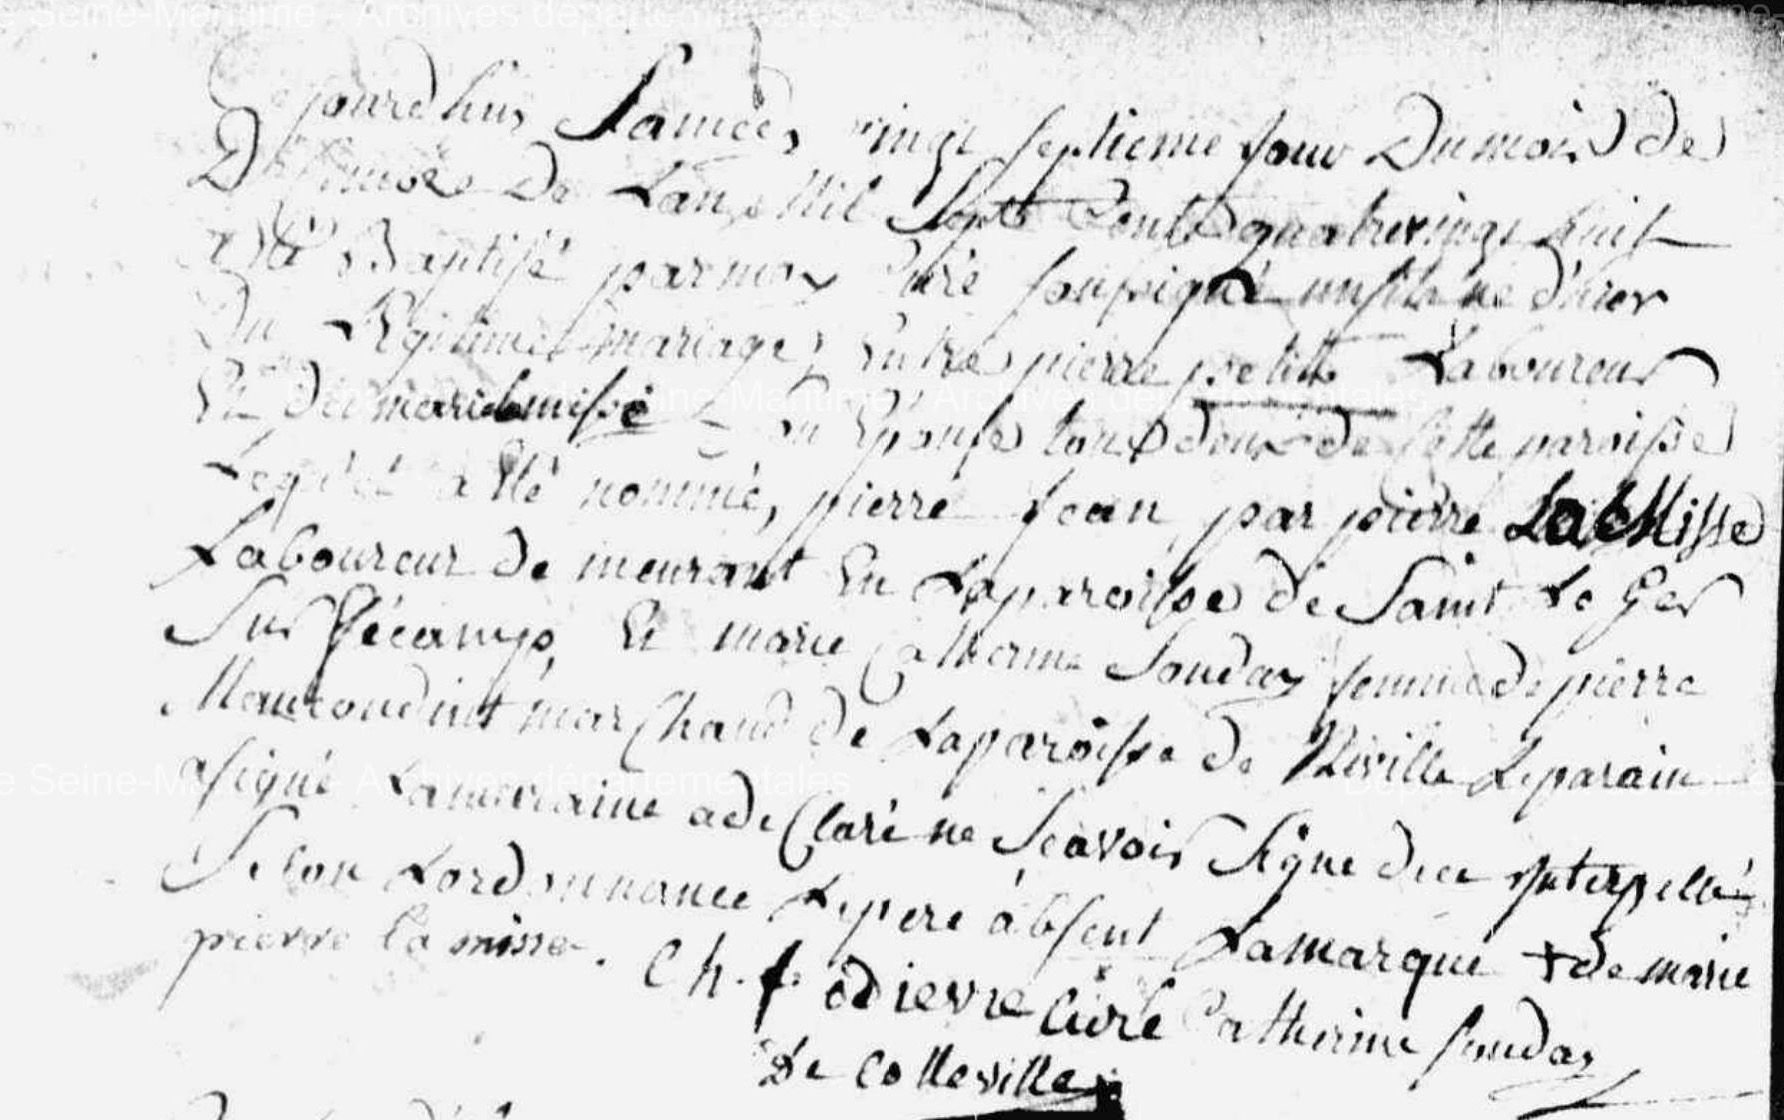 Cejourdhuy Samedy vingt septieme jour Dumois de
Decembre De Lan Mil Sept Cents quatrevingt huit
a Eté Baptisé par moy Curé soussigné un fils né d'hier
Du Legitime mariage Entre pierre petit Laboureur
Et De marie lamisse son Epouse tous deux de Cette paroisse
Lequel a Eté nommé, pierre jean par pierre La Misse
Laboureur de meurant En La paroisse de Saint Le Ger
Sur fécamp, Et marie Catherine Souday femme de pierre
Mauconduit marChand de La paroisse de Riville Leparain
a signé Lamaraine a de Claré ne Scavoir Signe de ce Interpellé
Selon Lordonnance Le pere absent Lamarque + de marie
pierre la misse. Ch. f. odievre Curé Catherine souday
De Colleville